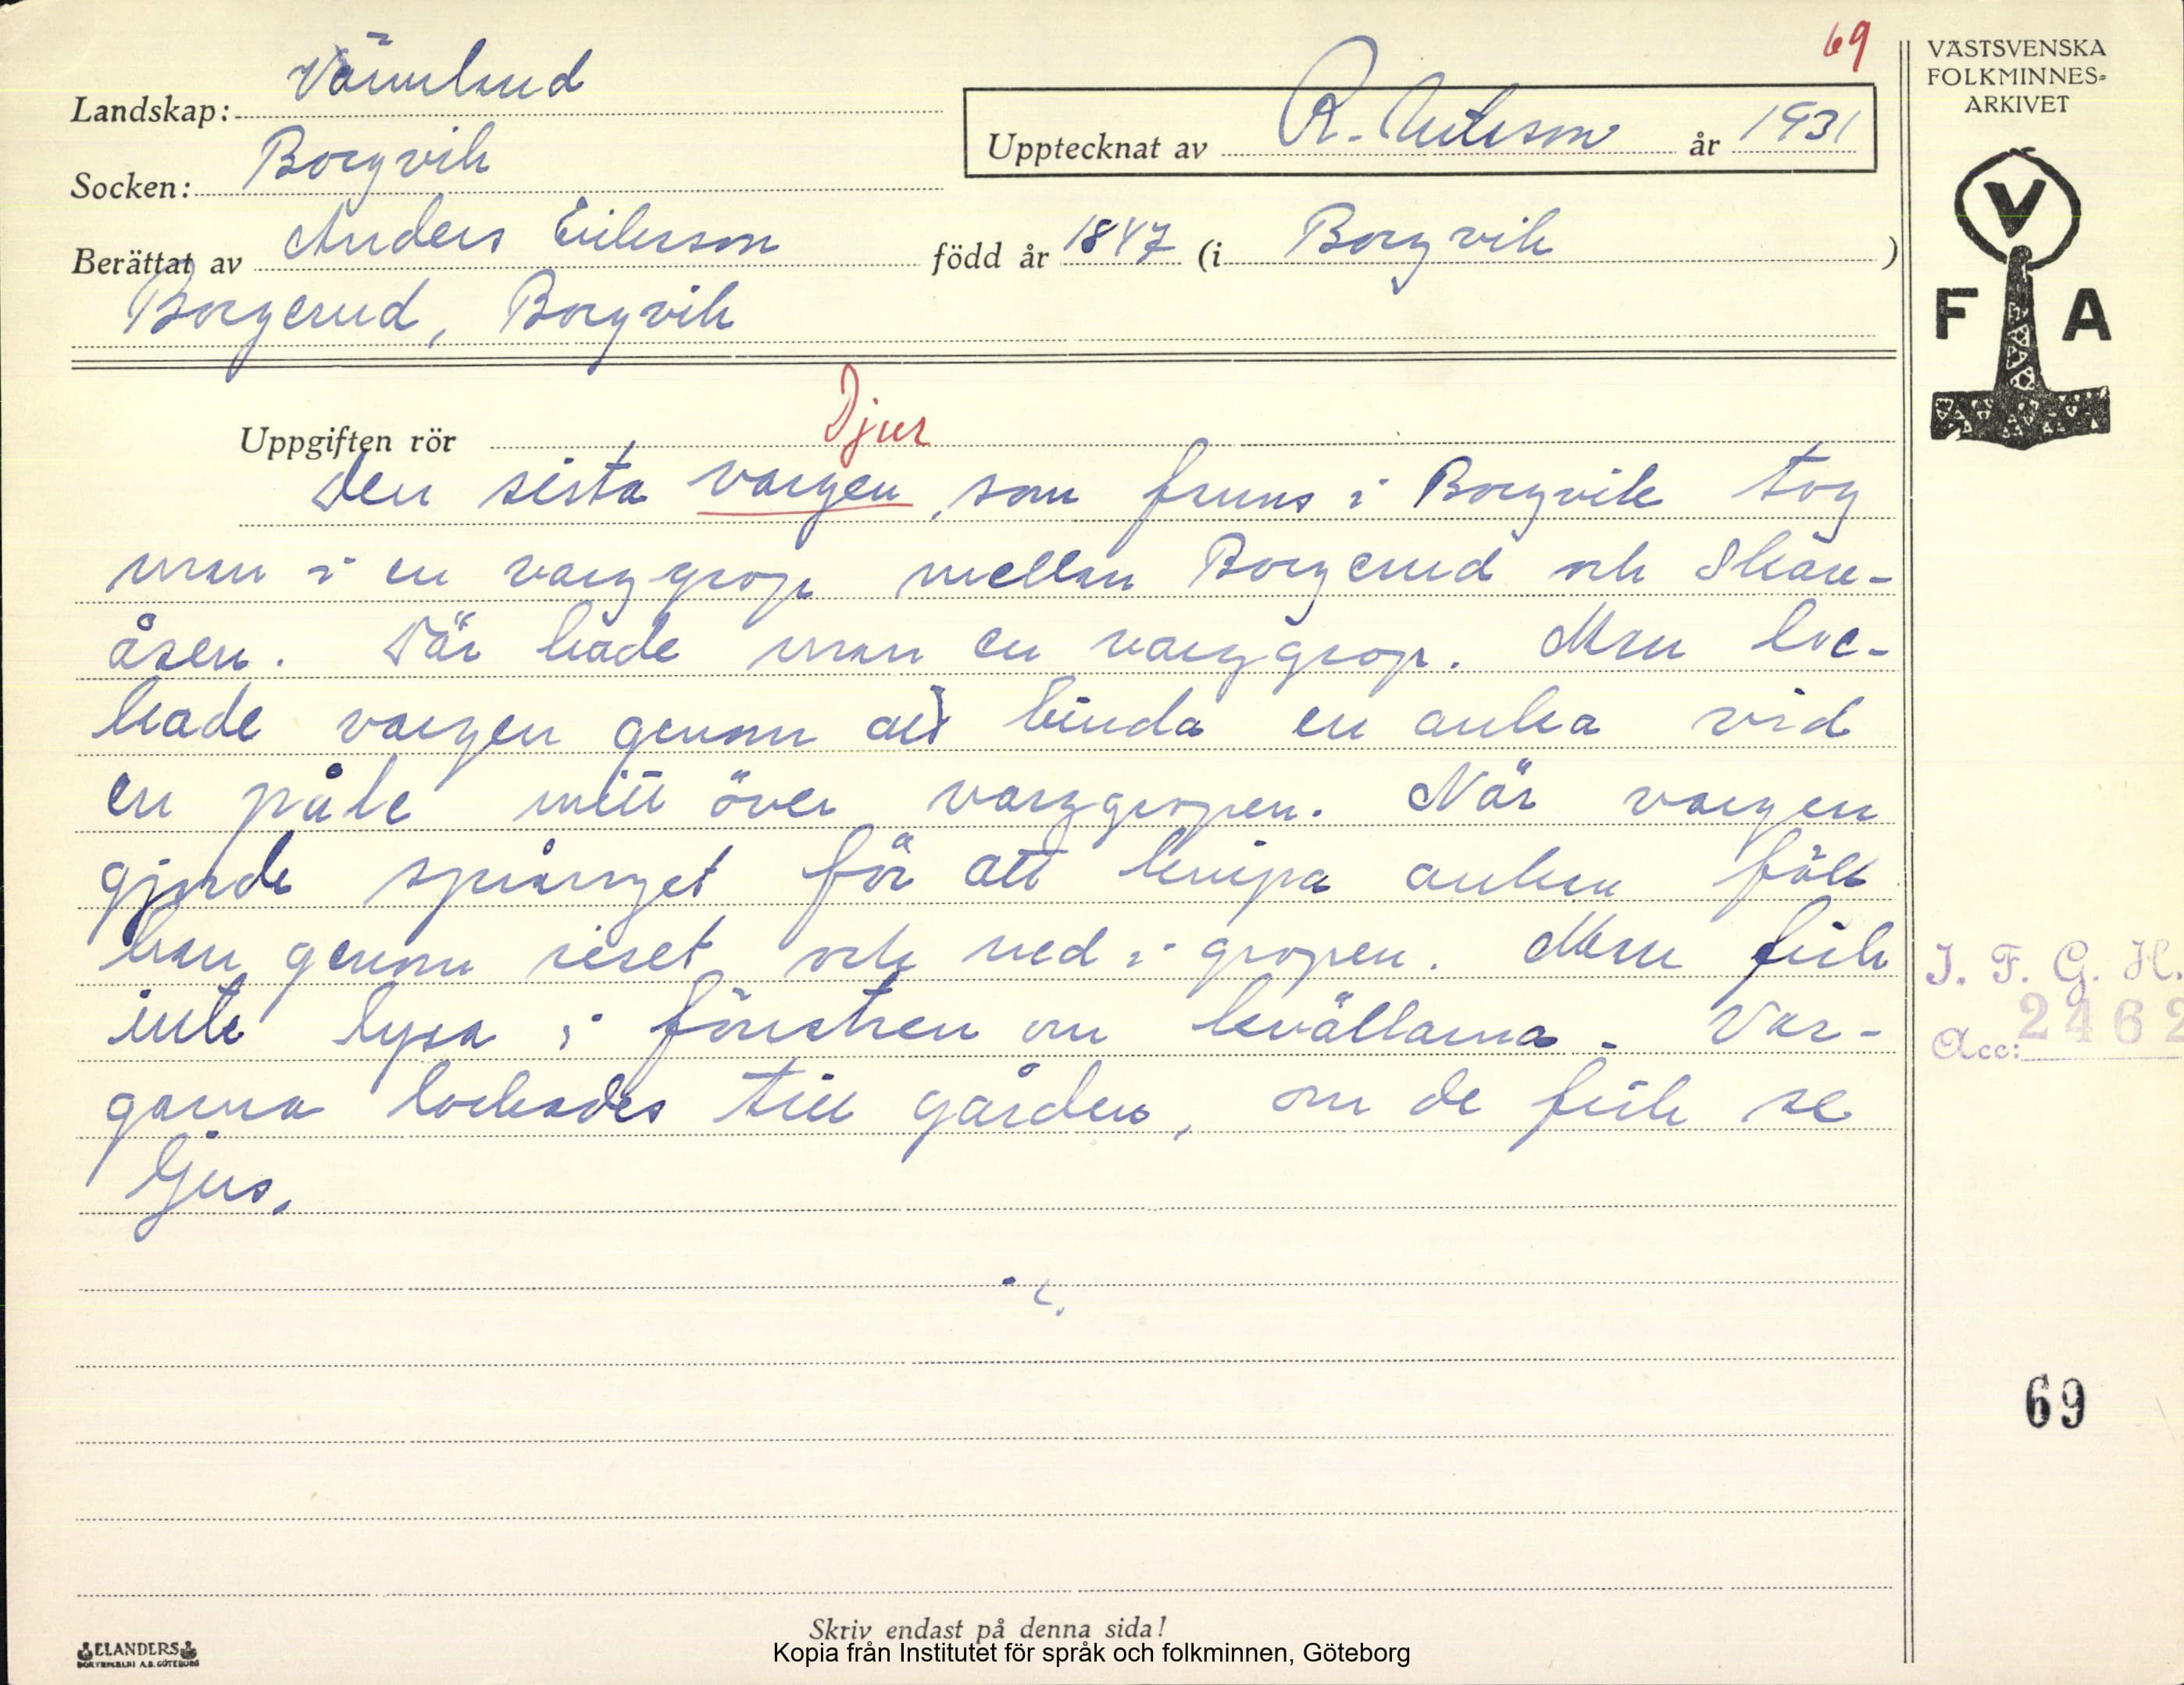 69
Landskap: Värmland
Socken: Borgvik
Upptecknat av R. Nilsson år 1931
Berättat av Anders Eriksson född år 1847 (i Borgvik )
Borgerud, Borgvik
Uppgiften rör Djur
Den sista vargen, som fanns i Borgvik tog
man i en varggrop mellan Borgerud och Skåre-
åsen. Där hade man en varggrop. Man loc-
kade vargen genom att binda en anka vid
en påle mitt över varggropen. När vargen
gjorde språnget för att knipa ankan föll
han genom riset och ned i gropen. Man fick
inte lysa i fönstren om kvällarna. Var-
garna lockades till gården, om de fick se
ljus.
VÄSTSVENSKA
FOLKMINNES-
ARKIVET
V
F A
I. F. G. H.
Acc: 2462
69
Skriv endast på denna sida!
ELANDERS
BOKTRYCKERI A.B. GÖTEBORG
Kopia från Institutet för språk och folkminnen, Göteborg